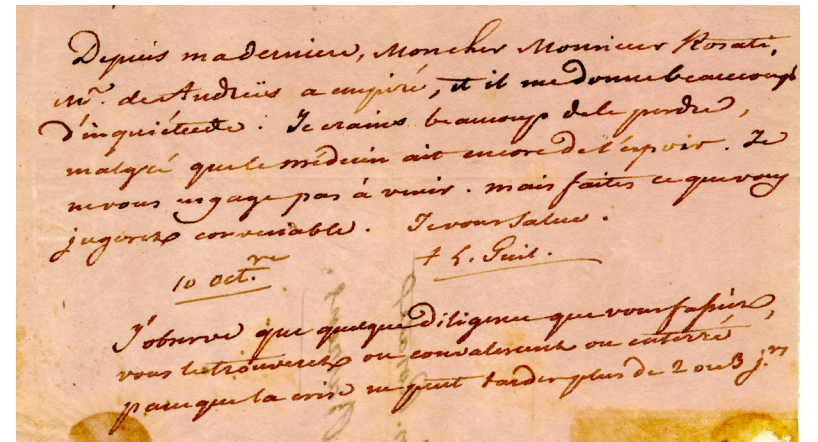 Depuis ma derniere, Mon cher Monsieur Rosati,
Mr. de Andreïs a empiré, et il me donne beaucoup
d'inquiétude. Je crains beaucoup de le perdre,
malgré que le médecin ait encore de l'espoir. Je
ne vous engage pas à venir. mais faites ce que vous
jugerez convenable. Je vous salue.
10 octre
† L. Guil.
J'observe que quelque diligence que vous fassiez,
vous le trouverez ou convalescent ou enterré
parce que la crise ne peut tarder plus de 2 ou 3 jrs